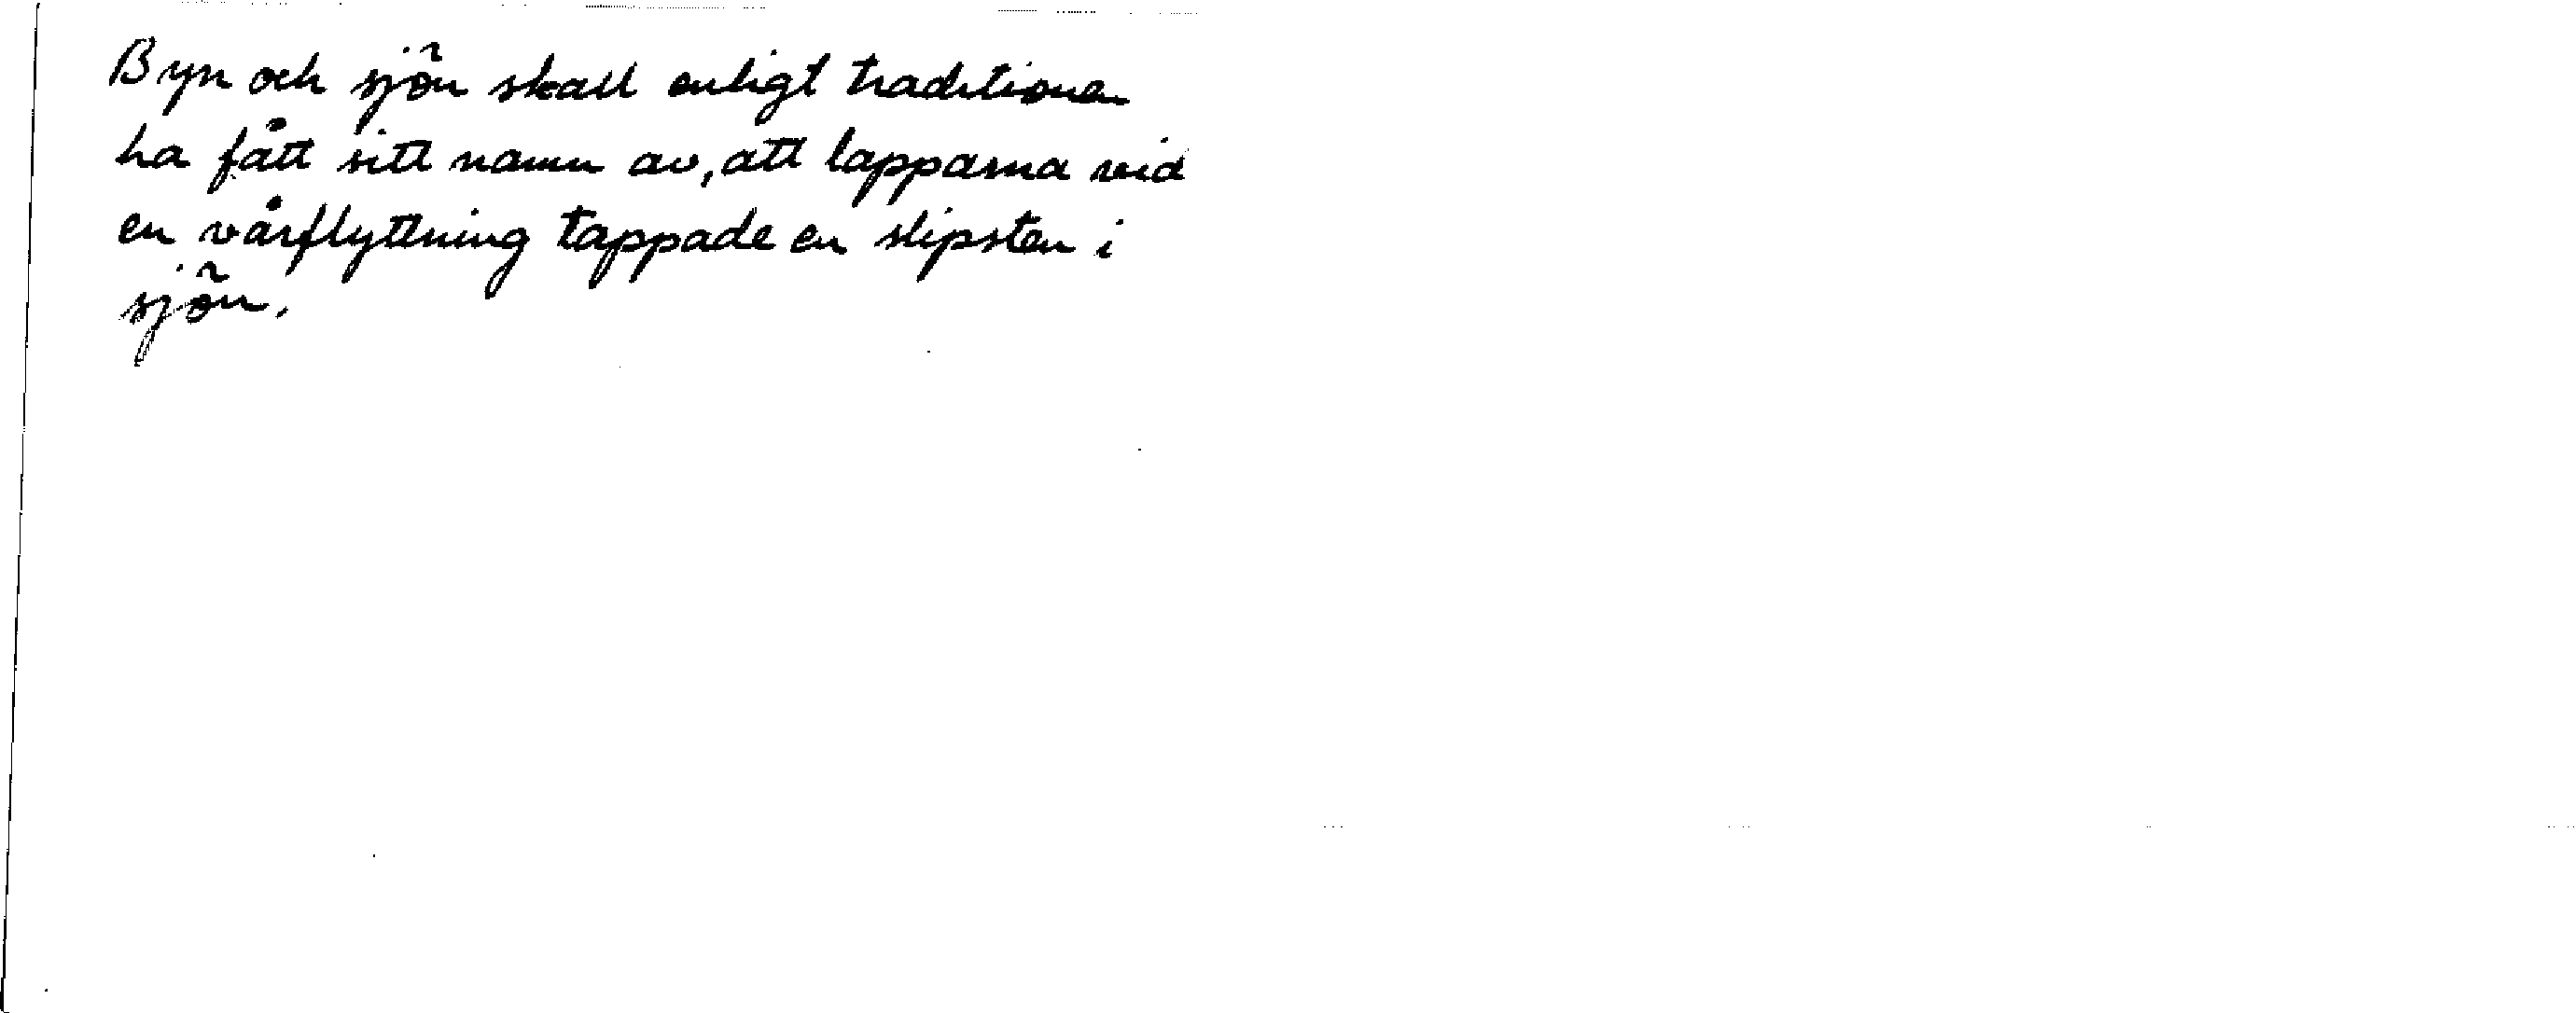 Byn och sjön skall enligt traditionen
ha fått sitt namn av, att lapparna vid
en vårflyttning tappade en slipsten i
sjön.